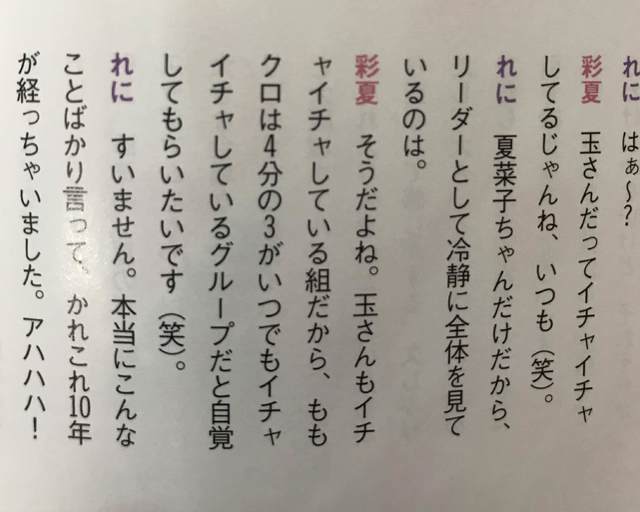 れに　はぁ～?
彩夏　玉さんだってイチャイチャ
してるじゃんね、いつも（笑）。
れに　夏菜子ちゃんだけだから、
リーダーとして冷静に全体を見て
いるのは。
彩夏　そうだよね。玉さんもイチ
ャイチャしている組だから、もも
クロは4分の3がいつでもイチャ
イチャしているグループだと自覚
してもらいたいです（笑）。
れに　すいません。本当にこんな
ことばかり言って、かれこれ10年
が経っちゃいました。アハハハ！